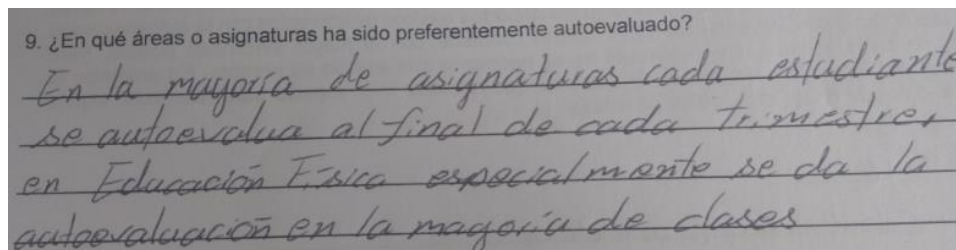 9. ¿En qué áreas o asignaturas ha sido preferentemente autoevaluado?
En la mayoría de asignaturas cada estudiante
se autoevalua al final de cada trimestre,
en Educación Física especialmente se da la
autoevaluación en la mayoría de clases